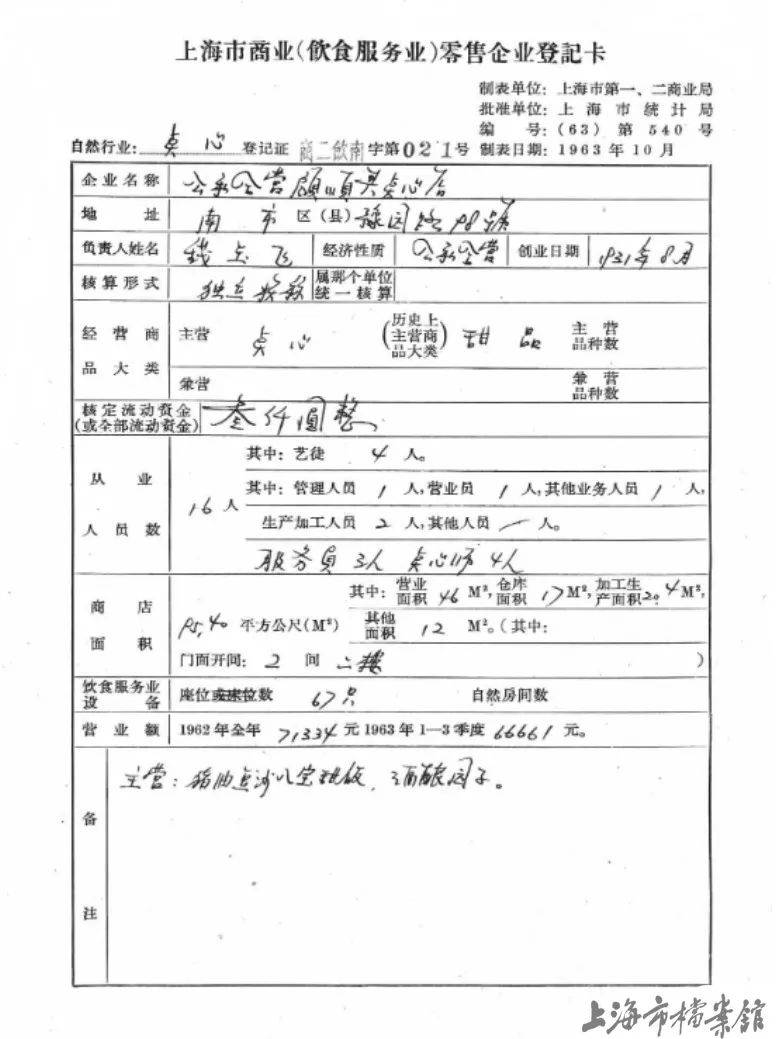 上海市商业(飲食服务业)零售企业登記卡
制表单位: 上海市第一、二商业局
批准单位: 上海市統計局
編号: (63) 第 540 号
自然行业: 点心 登记证 商二飲南 字第 021 号 制表日期: 1963年10月
企业名称 公私合营顧順興点心店
地址 南市区(县) 豫园路98號
负责人姓名 钱 飞 经济性质 公私合营 创业日期 1931年8月
核算形式 独立核算 属那个单位统一核算
经营商品大类 主营 点心 (历史上主营商品大类) 甜品 主营品种数
兼营 兼营品种数
核定流动资金(或全部流动資金) 叁仟圆整
从业人员数 16人 其中: 艺徒 4 人。
其中: 管理人员 1 人, 营业员 1 人, 其他业务人员 1 人,
生产加工人员 2 人, 其他人员 一 人。
服务員 3人 点心师 4人
商店面积 95.40 平方公尺(M²) 其中: 营业面积 46 M², 仓库面积 17 M², 加工生产面积 20.4 M²,
其他面积 12 M²。(其中:
门面开间: 2 间 二楼 )
飲食服务业设备 座位或床位数 67只 自然房间数
营业额 1962年全年 71334 元 1963年1—3季度 66661 元。
备注 主营: 猪油豆沙八宝甜饭, 酒酿园子。
上海市檔案館